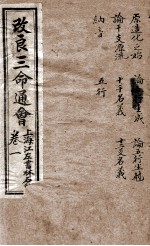 改良三命通會
卷一
上海江左書林
原造化之始
論
成
論五行生尅
論干支源流
十干名義
十二支名義
納音
五行